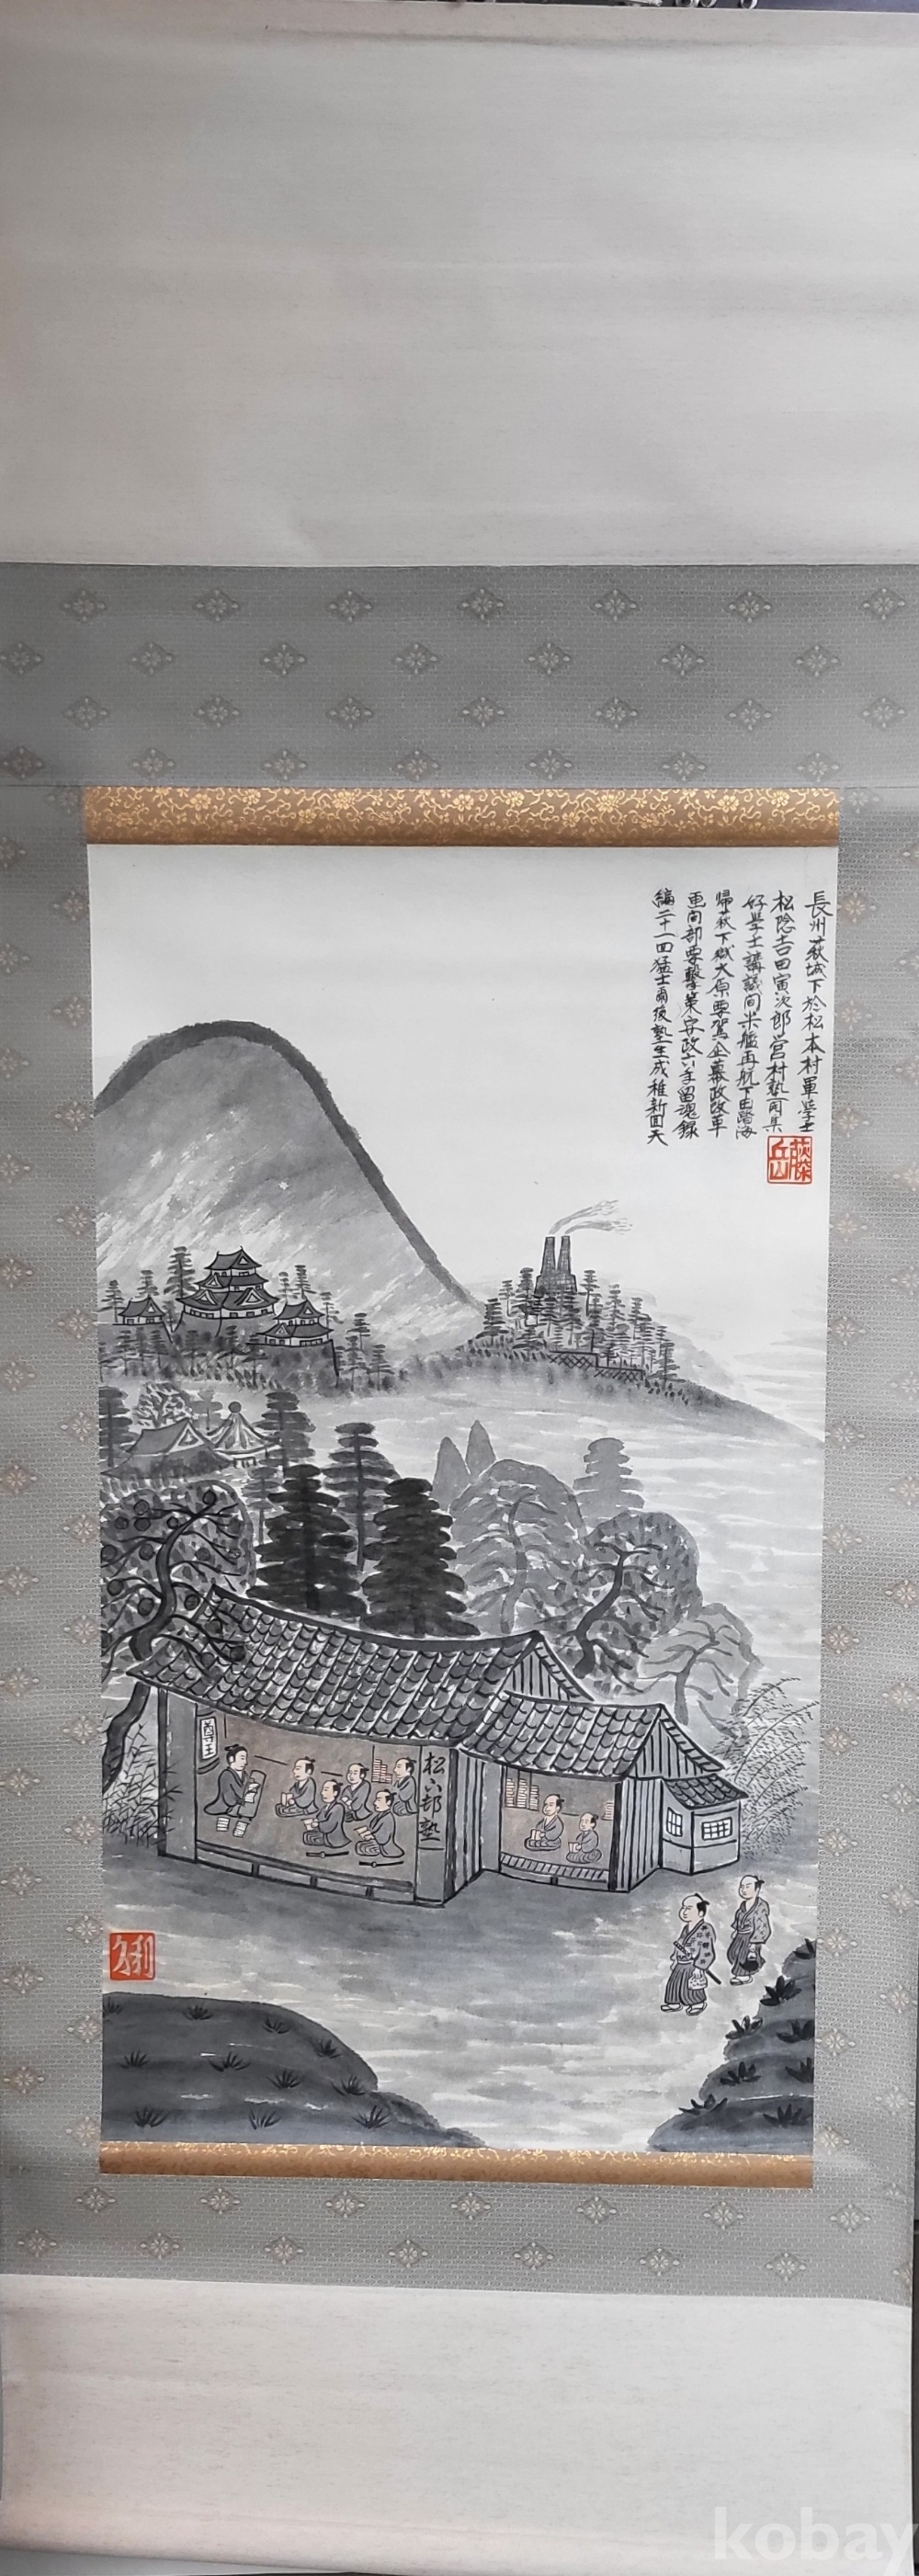 長州萩城下於松本村軍学士
松陰吉田寅次郎営村塾而集
好学士講議間米艦再航下田踏海
帰萩下獄大原要駕企幕政改革
更間部要撃策安政六年留魂録
編二十一回猛士爾後塾生成維新回天
尊王
松下邨塾
kobay